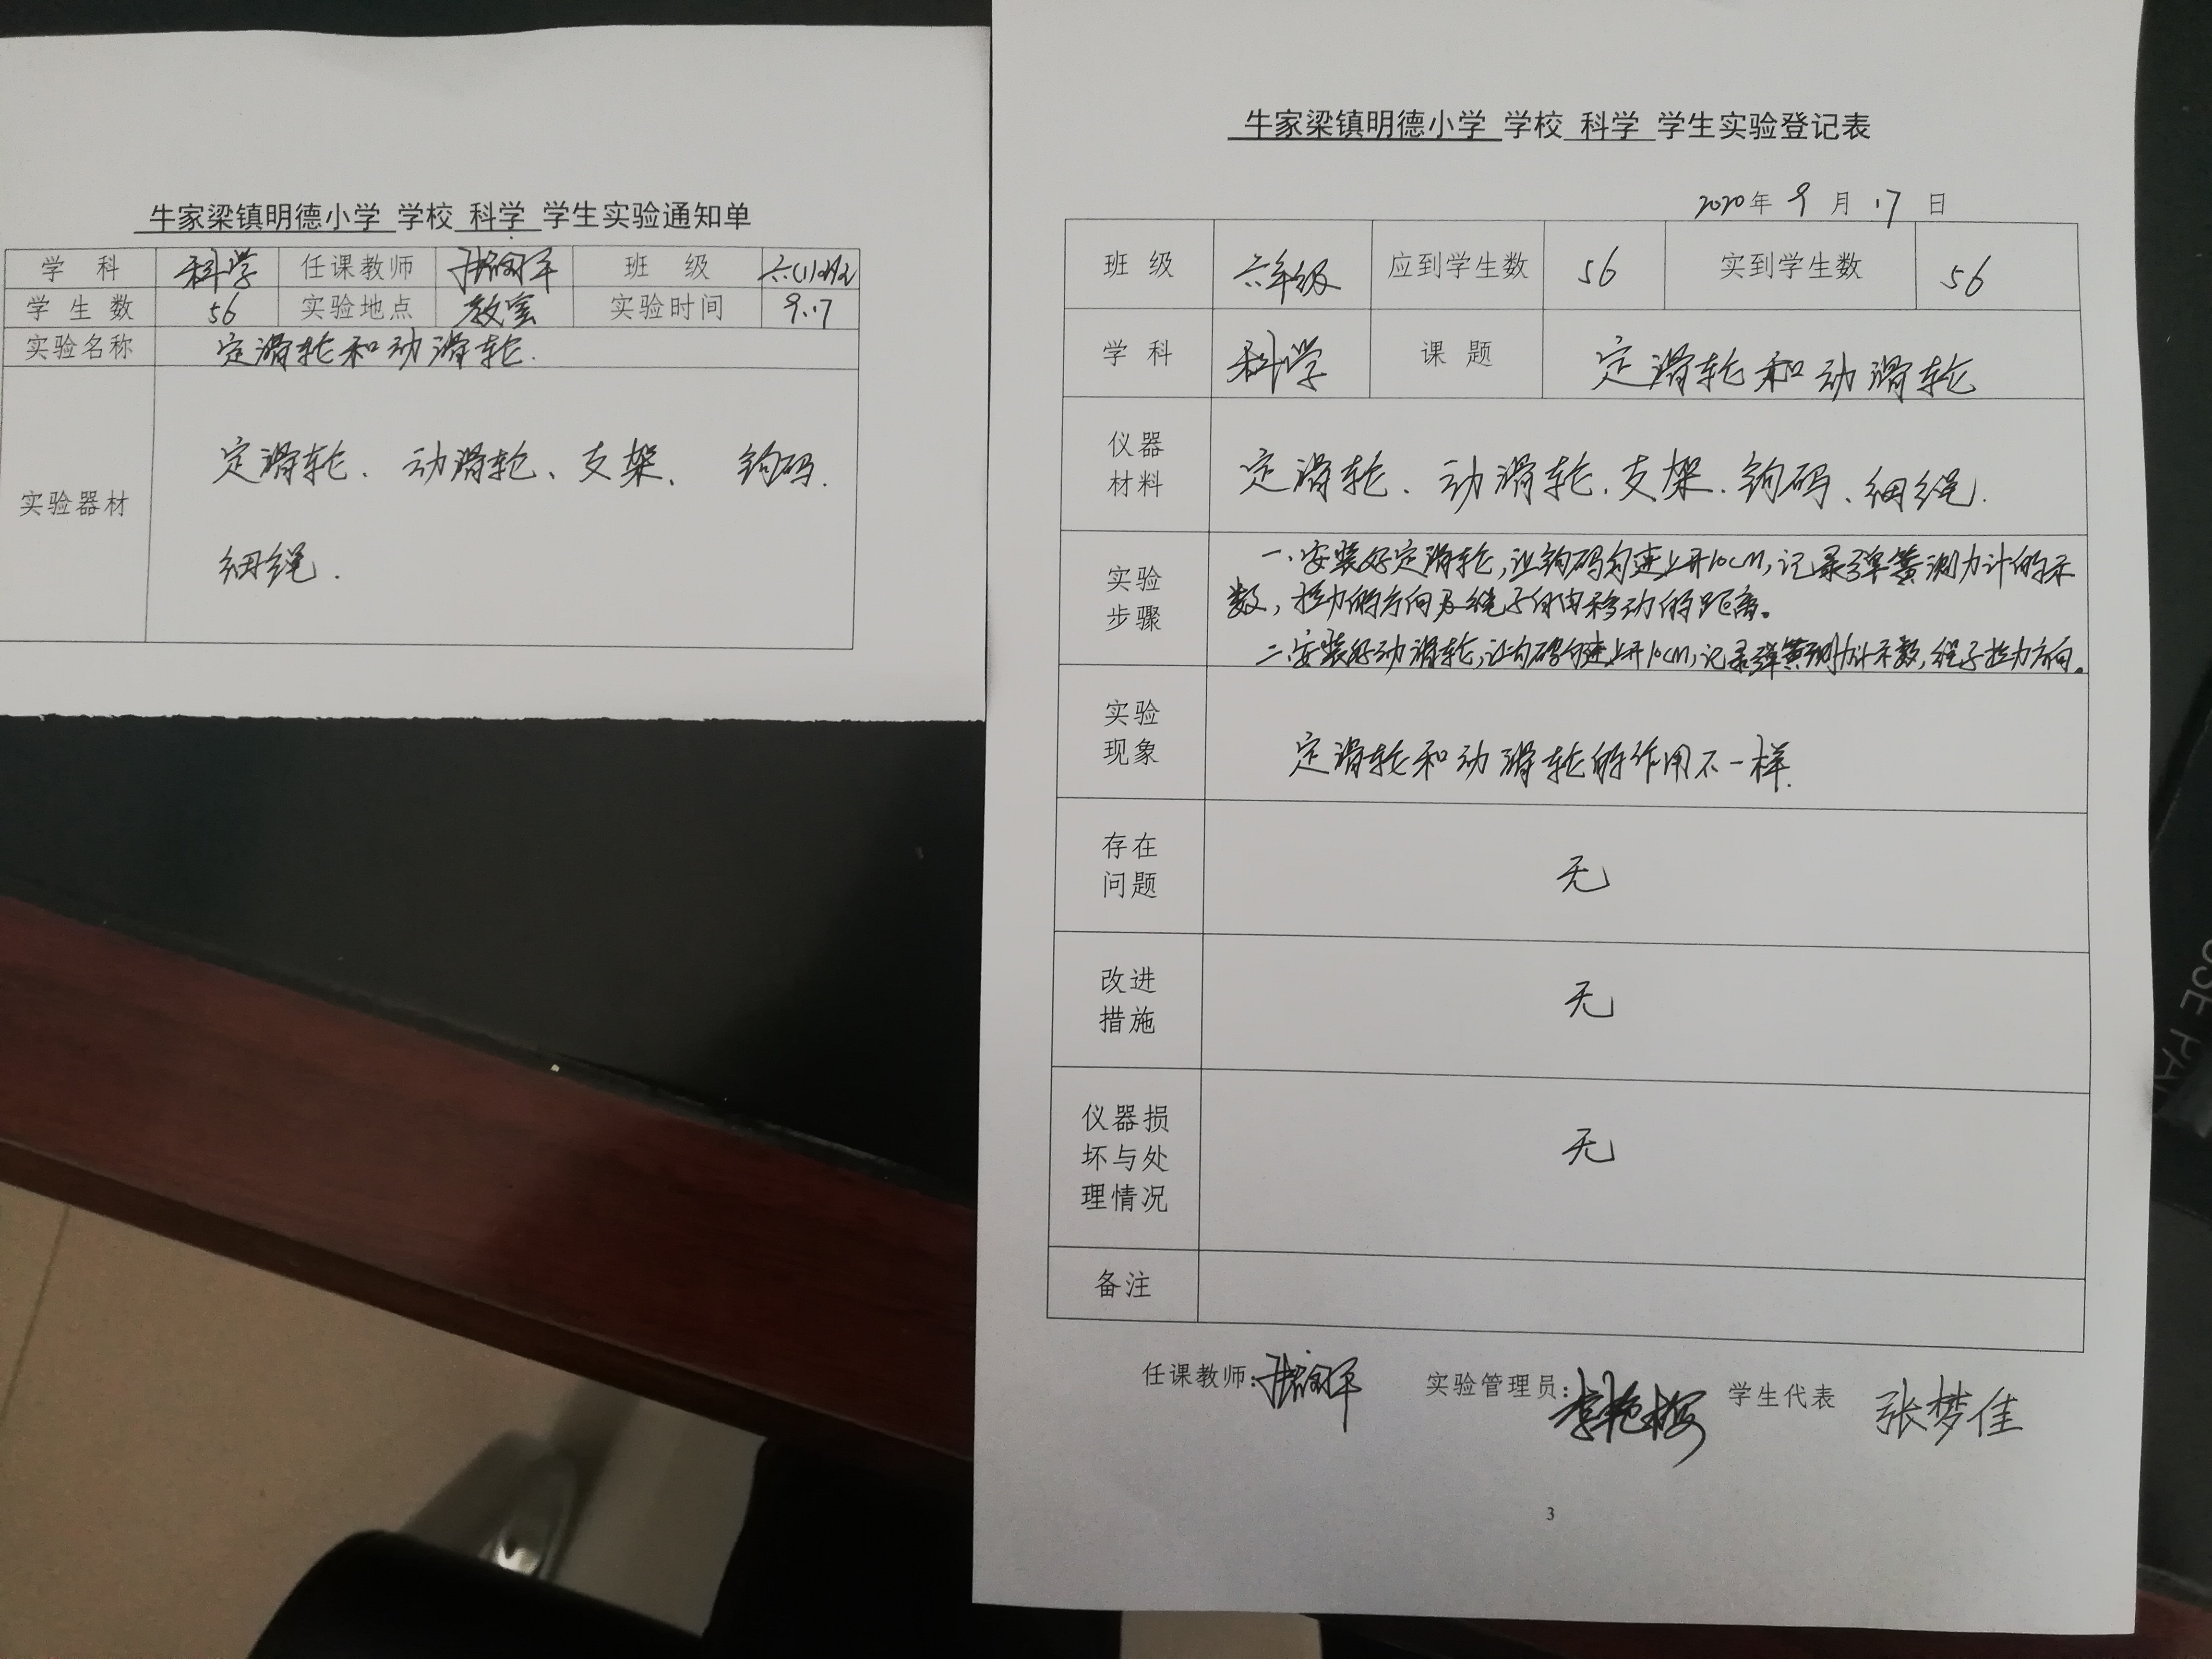 牛家梁镇明德小学 学校 科学 学生实验通知单
学 科 科学 任课教师 班 级
学 生 数 56 实验地点 教室 实验时间 9.17
实验名称 定滑轮和动滑轮.
实验器材
定滑轮、动滑轮、支架、钩码.
细绳.
牛家梁镇明德小学 学校 科学 学生实验登记表
2020年 9 月 17 日
班 级 六年级 应到学生数 56 实到学生数 56
学 科 科学 课 题 定滑轮和动滑轮
仪器
材料
定滑轮、动滑轮、支架、钩码、细绳.
实验
步骤
一、安装好定滑轮,让钩码匀速上升10cm,记录弹簧测力计的示
数,拉力的方向及绳子自由移动的距离。
二、安装好动滑轮,让勾码匀速上升10cm,记录弹簧测力计示数,绳子拉力方向。
实验
现象
定滑轮和动滑轮的作用不一样.
存在
问题
无
改进
措施
无
仪器损
坏与处
理情况
无
备注
任课教师: 实验管理员: 李艳梅 学生代表 张梦佳
3